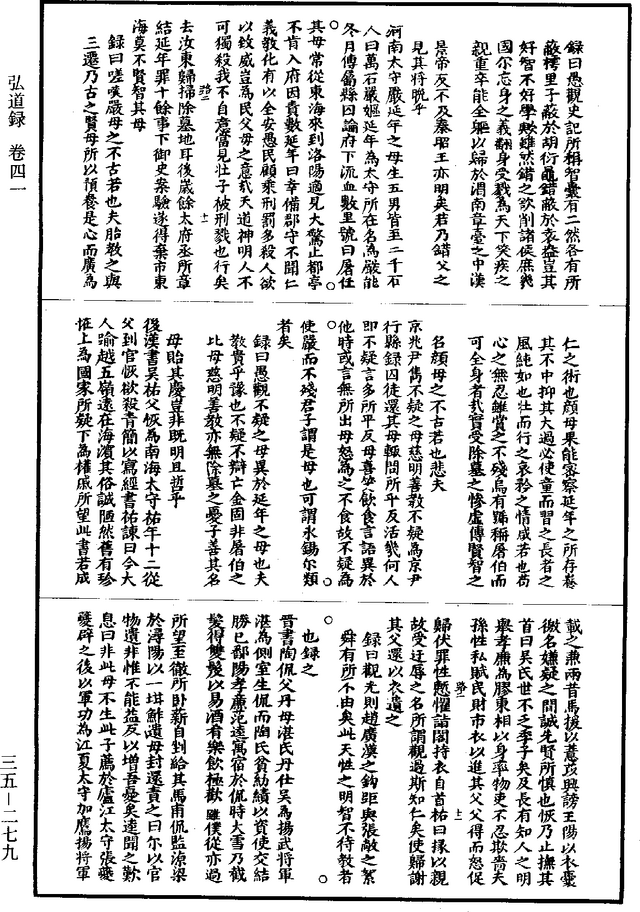 弘道録 卷四一
錄曰愚觀史記所稱智囊有二然各有所
蔽樗里子蔽於胡衍鼂錯蔽於袁盎豈其
好智不好學與雖然錯之欲削諸侯庶幾
國尔忘身之義翻身受戮為天下笑疾之
親重卒能全軀以歸於渭南章臺之中漢
景帝反不及秦昭王亦明矣若乃錯父之
見其將晚乎
河南太守嚴延年之母生五男皆至二千石
人曰萬石嚴嫗延年為太守所在名為嚴能
冬月傳屬縣囚論府下流血數里號曰屠伯
其母常從東海來到洛陽適見大驚止都亭
不肯入府因責數延年曰幸備郡守不聞仁
義教化有以全安愚民顧乘刑罰多殺人欲
以致威豈為民父母之意哉天道神明人不
可獨殺我不自意當見壯子被刑戮也行矣
去汝東歸掃除墓地耳後歲餘太府丞所章
結延年罪十餘事下御史案驗遂得棄市東
海莫不賢智其母
錄曰嗟嘆嚴母之不古若也夫胎教之與
三遷乃古之賢母所以預養是心而廣為
仁之術也顏母果能密察延年之所存養
其不中抑其大過必使童而習之長者之
風純如也壯而行之哀矜之情咸若也苟
心之無忍雖賞之不殘烏有號稱屠伯而
可全身者哉實受除墓之慘虛傳賢智之
名顏母之不古若也悲夫
京兆尹雋不疑之母慈明善教不疑為京尹
行縣錄囚徒還其母輒問所平反活幾何人
即不疑言多所平反母喜笑飲食言語異於
他時或言無所出母怒為之不食故不疑為
使嚴而不殘君子謂是母也可謂永錫尔類
者矣
錄曰愚觀不疑之母異於延年之母也夫
教貴乎豫也不疑不辯亡金固非屠伯之
比母慈明善教亦無除墓之憂子善其名
母貽其慶豈非既明且哲乎
後漢書吳祐父恢為南海太守祐年十二從
父到官恢欲殺青簡以寫經書祐諫曰今大
人踰越五嶺遠在海濱其俗誠陋然舊有珍
怪上為國家所疑下為權戚所望此書若成
載之兼兩昔馬援以薏苡興謗王陽以衣囊
徼名嫌疑之間誠先賢所慎也恢乃止撫其
首曰吳氏世不乏季子矣及長有知人之明
舉孝廉為膠東相以身率物吏不忍欺嗇夫
孫性私賦民財市衣以進其父父得而怒促
歸伏罪性慙懼詣閣持衣自首祐曰掾以親
故受汙辱之名所謂觀過斯知仁矣使歸謝
其父還以衣遺之
錄曰觀光則趙廣漢之鈎距與張敞之絮
舜有所不由矣此天性之明智不待教者
也錄之
晉書陶侃父丹母湛氏丹仕吳為揚武將軍
湛為側室生侃而陶氏貧紡績以資使交結
勝已鄱陽孝廉范逵寓宿於侃時大雪乃截
髮得雙髲以易酒肴樂飲極歡雖僕從亦過
所望至徹所卧薪自剉給其馬甫侃監漁梁
於潯陽以一坩鮓遺母封還責之曰尔以官
物遺非惟不能益反以增吾憂矣逵聞之歎
息曰非此母不生此子薦於廬江太守張夔
夔辟之後以軍功為江夏太守加鷹揚將軍
三五—二七九